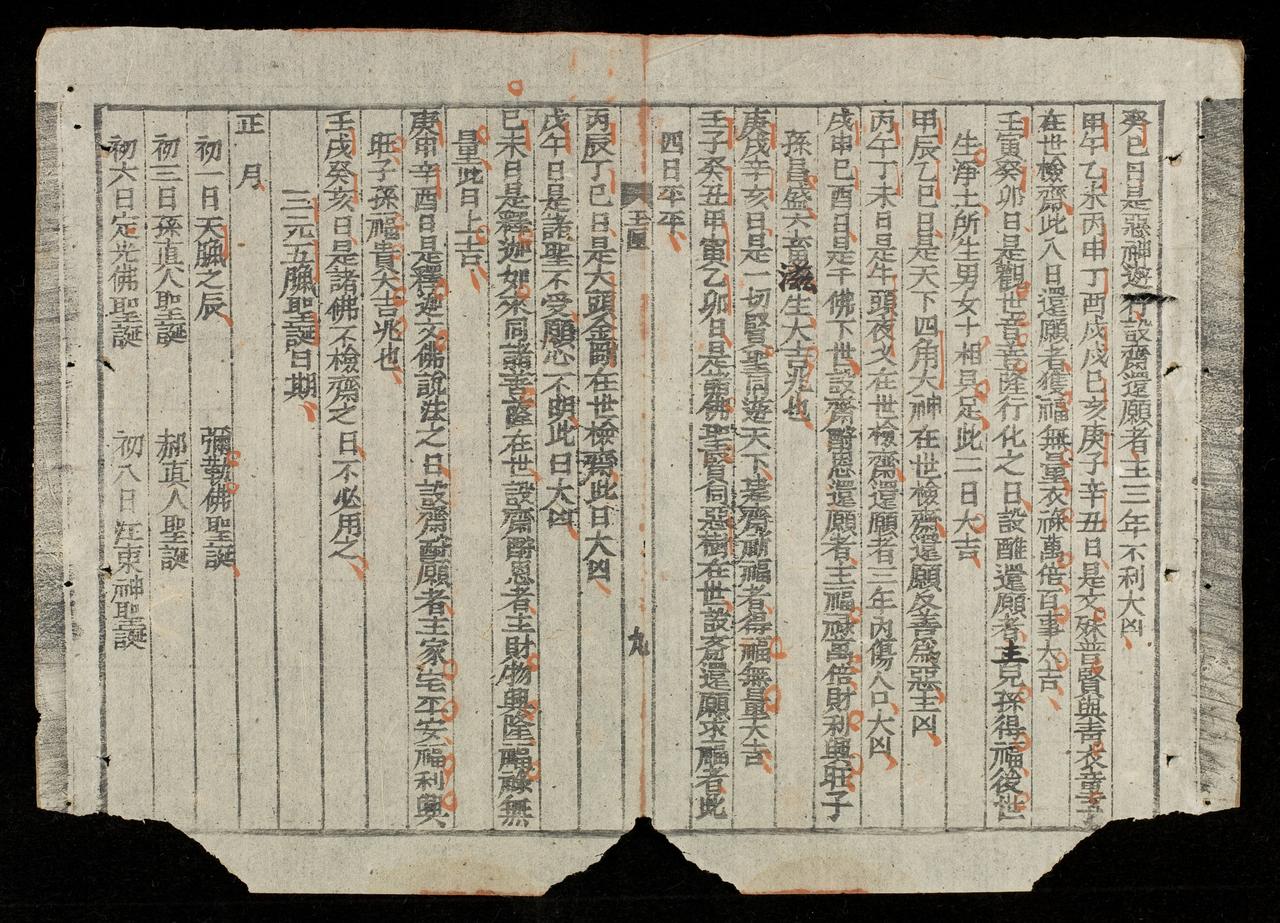 癸巳日是惡神遊行設齋還願者主三年不利大凶
甲午乙未丙申丁酉戊戌己亥庚子辛丑日是文殊普賢與善衣童子
在世檢齋此八日還願者獲福無量衣祿萬倍百事大吉
壬寅癸卯日是觀世音菩薩行化之日設醮還願者主兒孫得福後世
生淨土所生男女十相具足此二日大吉
甲辰乙巳日是天下四角大神在世檢齋還願反善為惡主凶
丙午丁未日是牛頭夜叉在世檢齋還願者三年內傷人口大凶
戊申己酉日是千佛下世設齋酧恩還願者主福祿萬倍財利興旺子
孫昌盛六畜滋生大吉兆也
庚戌辛亥日是一切賢聖同遊天下建齋祈福者得福無量大吉
壬子癸丑甲寅乙卯日是諸佛聖賢同惡樹在世設斎還願求福者此
四日平平
玉匣
九
丙辰丁巳日是大頭金剛在世檢齋此日大凶
戊午日是諸聖不受願心不明此日大凶
己未日是釋迦如來同諸菩薩在世設齋酧恩者主財物興隆福祿無
量此日上吉
庚申辛酉日是釋迦文佛說法之日設齋酧願者主家宅平安福利興
旺子孫福貴大吉兆也
壬戌癸亥日是諸佛不檢齋之日不必用之
三元五臘聖誕日期
正月
初一日天臘之辰 彌勒佛聖誕
初三日孫真人聖誕 郝真人聖誕
初六日定光佛聖誕 初八日江東神聖誕